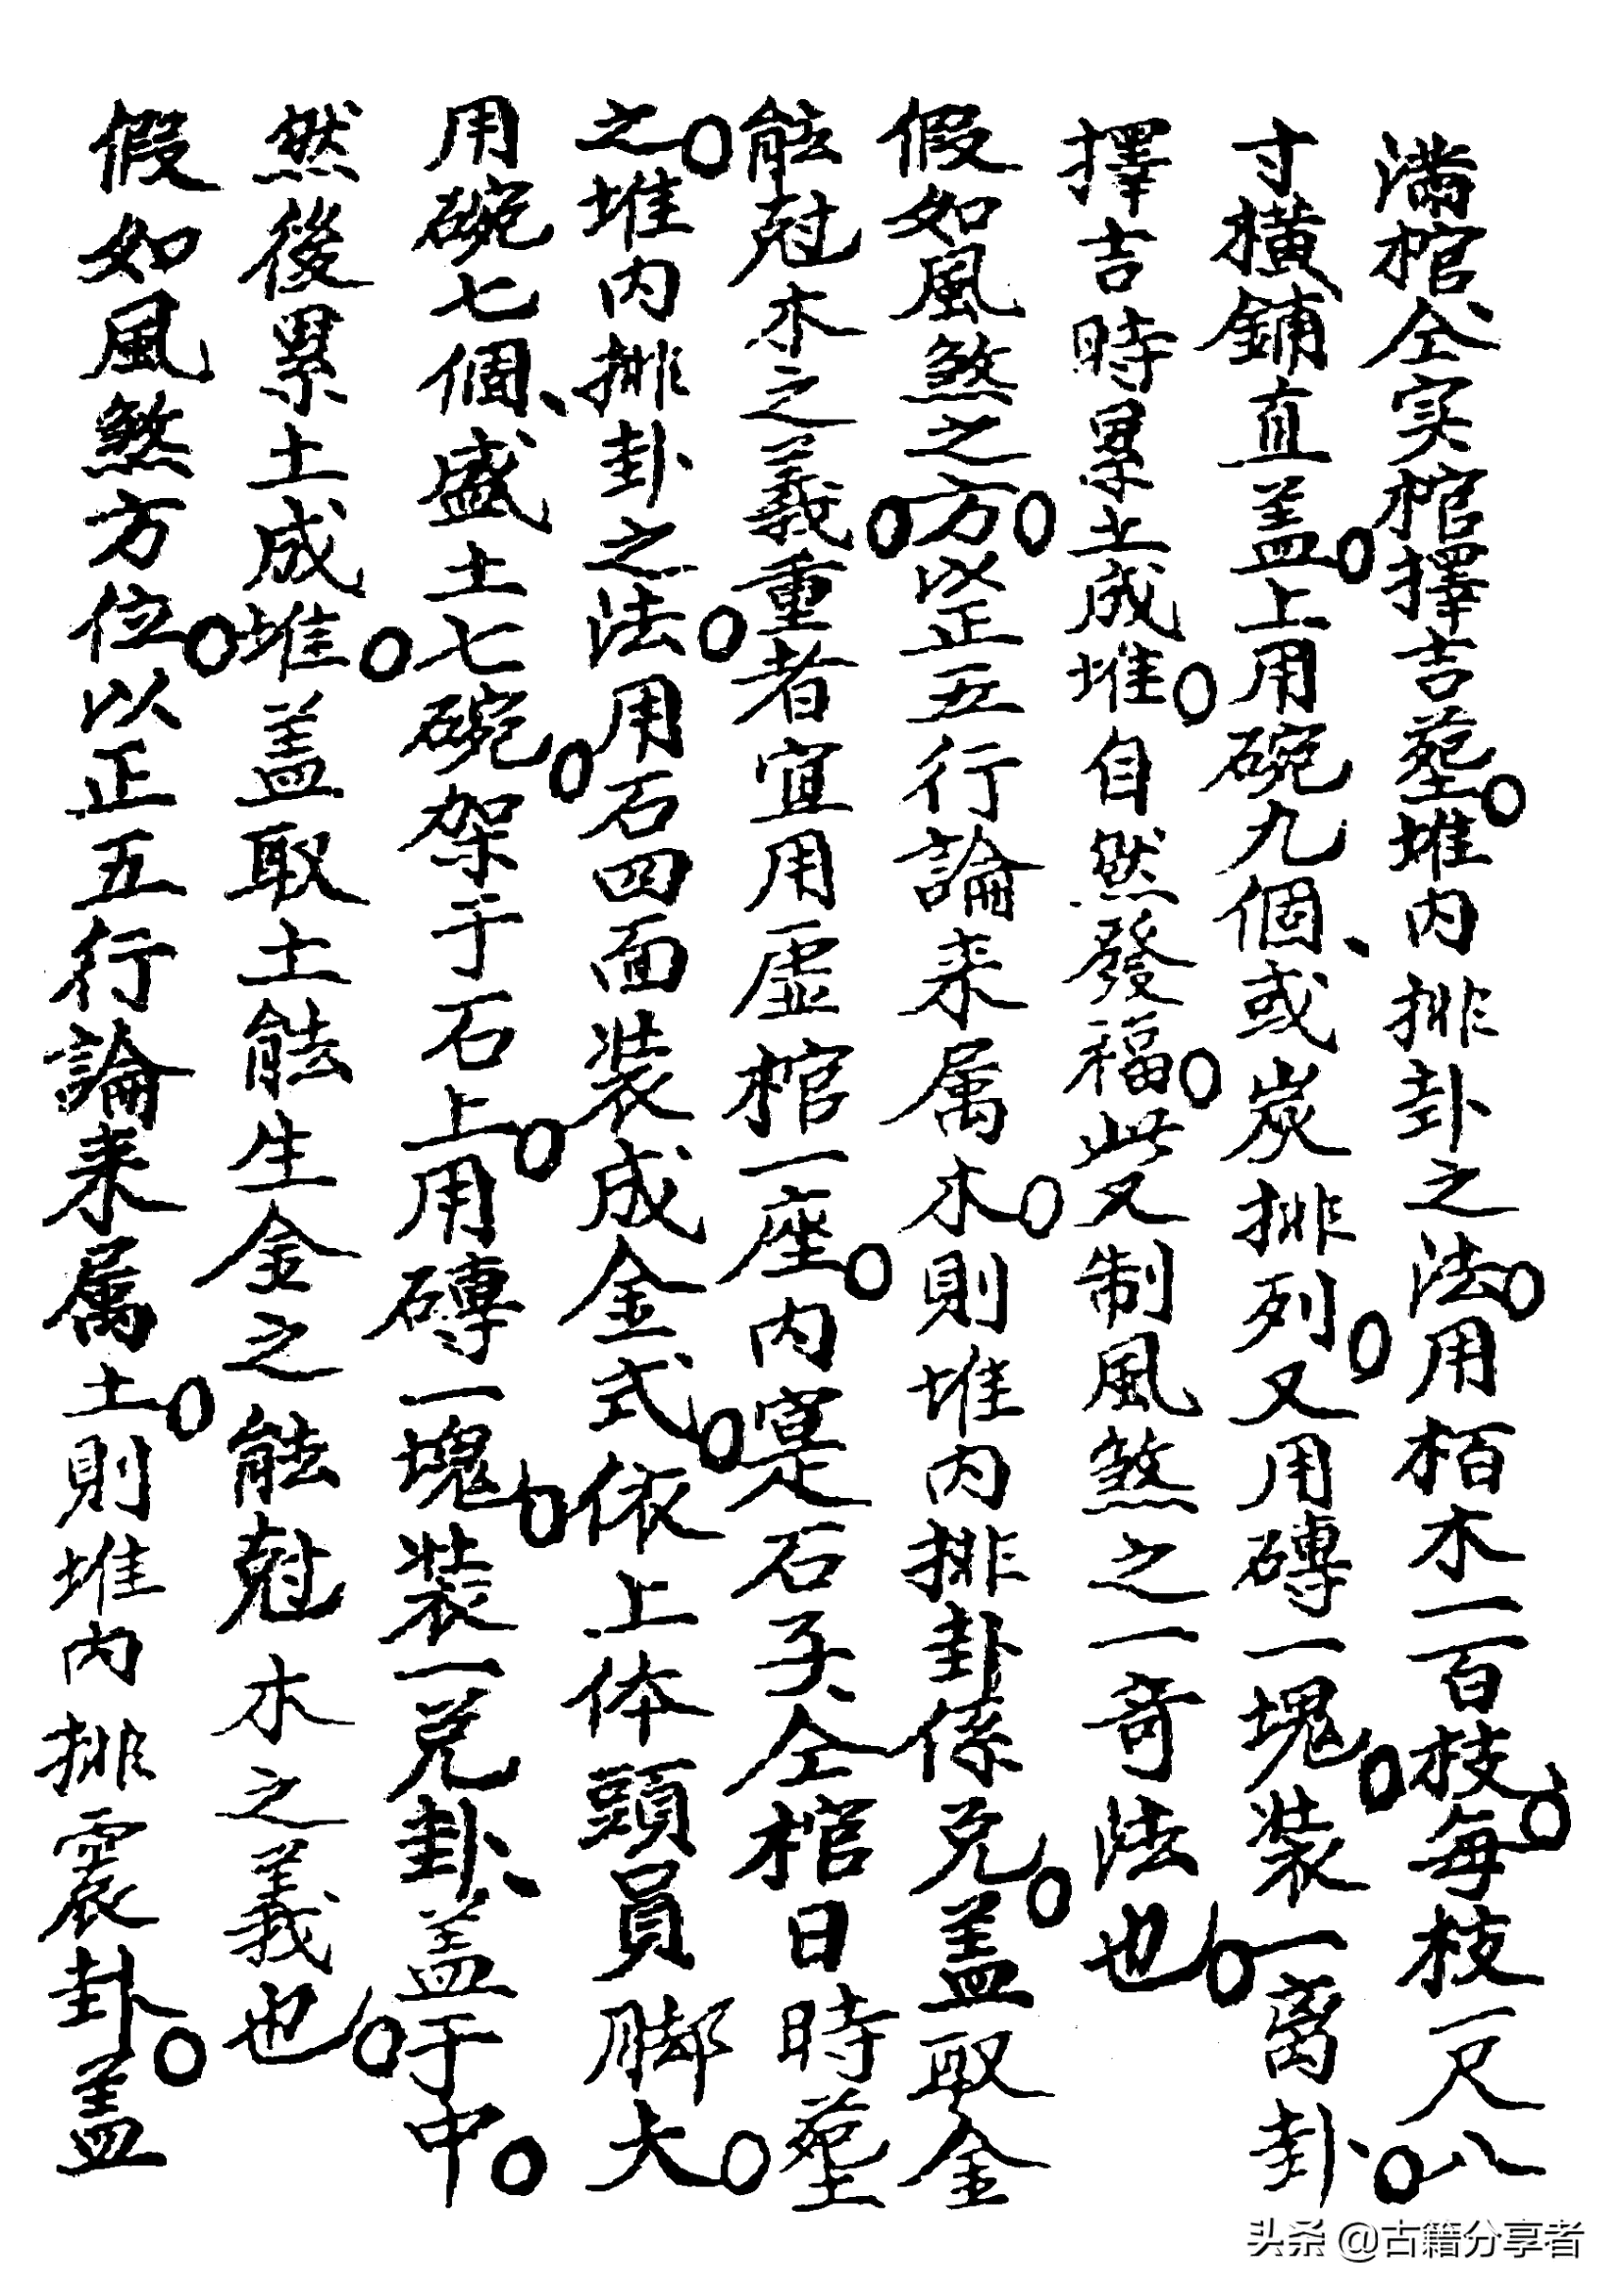 滿棺仝实棺擇吉塟。堆内排卦之法。用栢木一百枝。每枝一尺八
寸橫鋪直盖。上用碗九個、或炭排列。又用磚一塊。裝一离卦、。
擇吉時累土成堆。自然發福。此又制風煞之一奇法也。
假如風煞之方。以正五行論来属木。則堆内排卦係兑。盖取金
能尅木之義。重者宜用虚棺一座。内寔石子仝棺日時塟
之。堆内排卦之法。用石四面裝成金式。依上体頭員脚大。
用碗七個、盛土七碗。架于石上。用磚一塊。裝一兑卦、盖于中。
然後累土成堆。盖取土能生金之能尅木之義也。
假如風煞方位。以正五行論来属土。則堆内排震卦。盖
头条 @古籍分享者